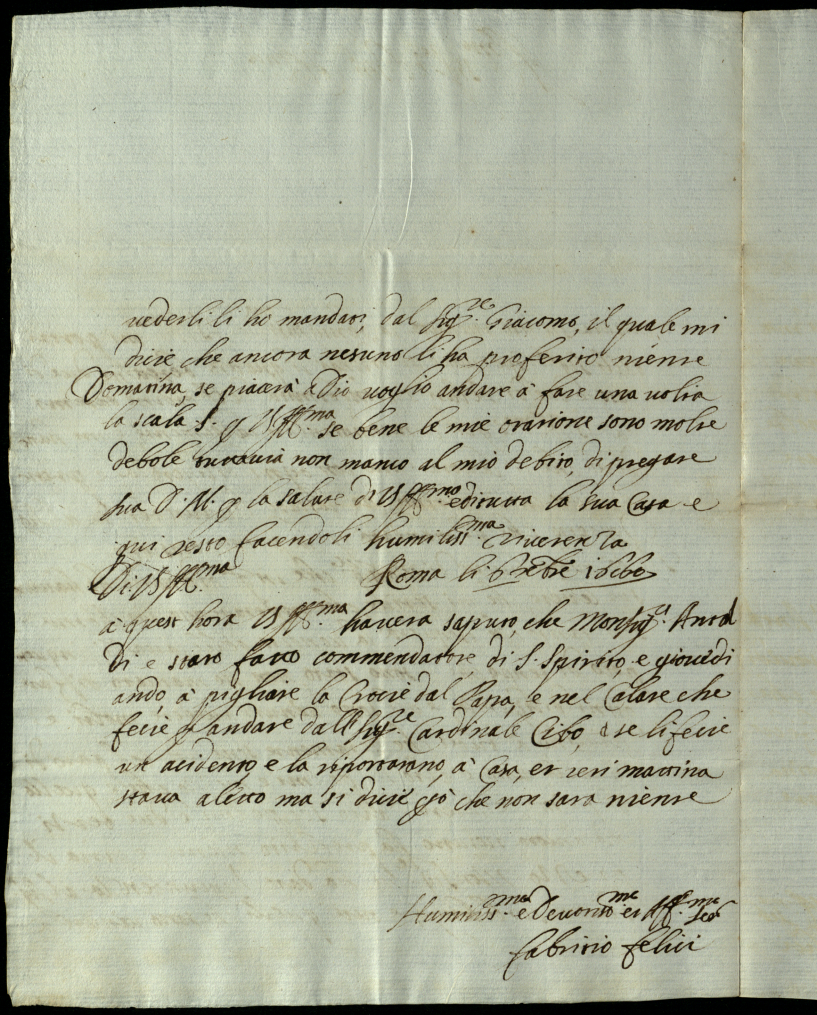 vederli li ho mandati, dal Sig.re Giacomo, il quale mi
dicie che ancora nesuno li ha proferito niente
Domatina, se piacerà à Dio voglio andare à fare una volta
la scala S. p VS Ill.ma se bene le mie oratione sono molte
debole tuttavia non manco al mio debito, di pregare
sua D. M. p la salute di VS Ill.ma e di tutta la sua Casa e
qui resto facendoli humiliss.ma riverenza
Di VS Ill.ma Roma li
à quest hora VS Ill.ma havera saputo, che Monsig.r
di e stato fatto commendatore, di S. Spirito e giovedi
andò, à pigliare la Crocie dal Papa, e nel Calare che
fecie p andare dall Sig.re Cardinale Cibo, se li fecie
un acidento e la riportorano, à Casa, et ieri mattina
stava aletto ma si dicie però che non sara niente
Humiliss.mo e Devotis.mo et Ser
Fabritio Felici